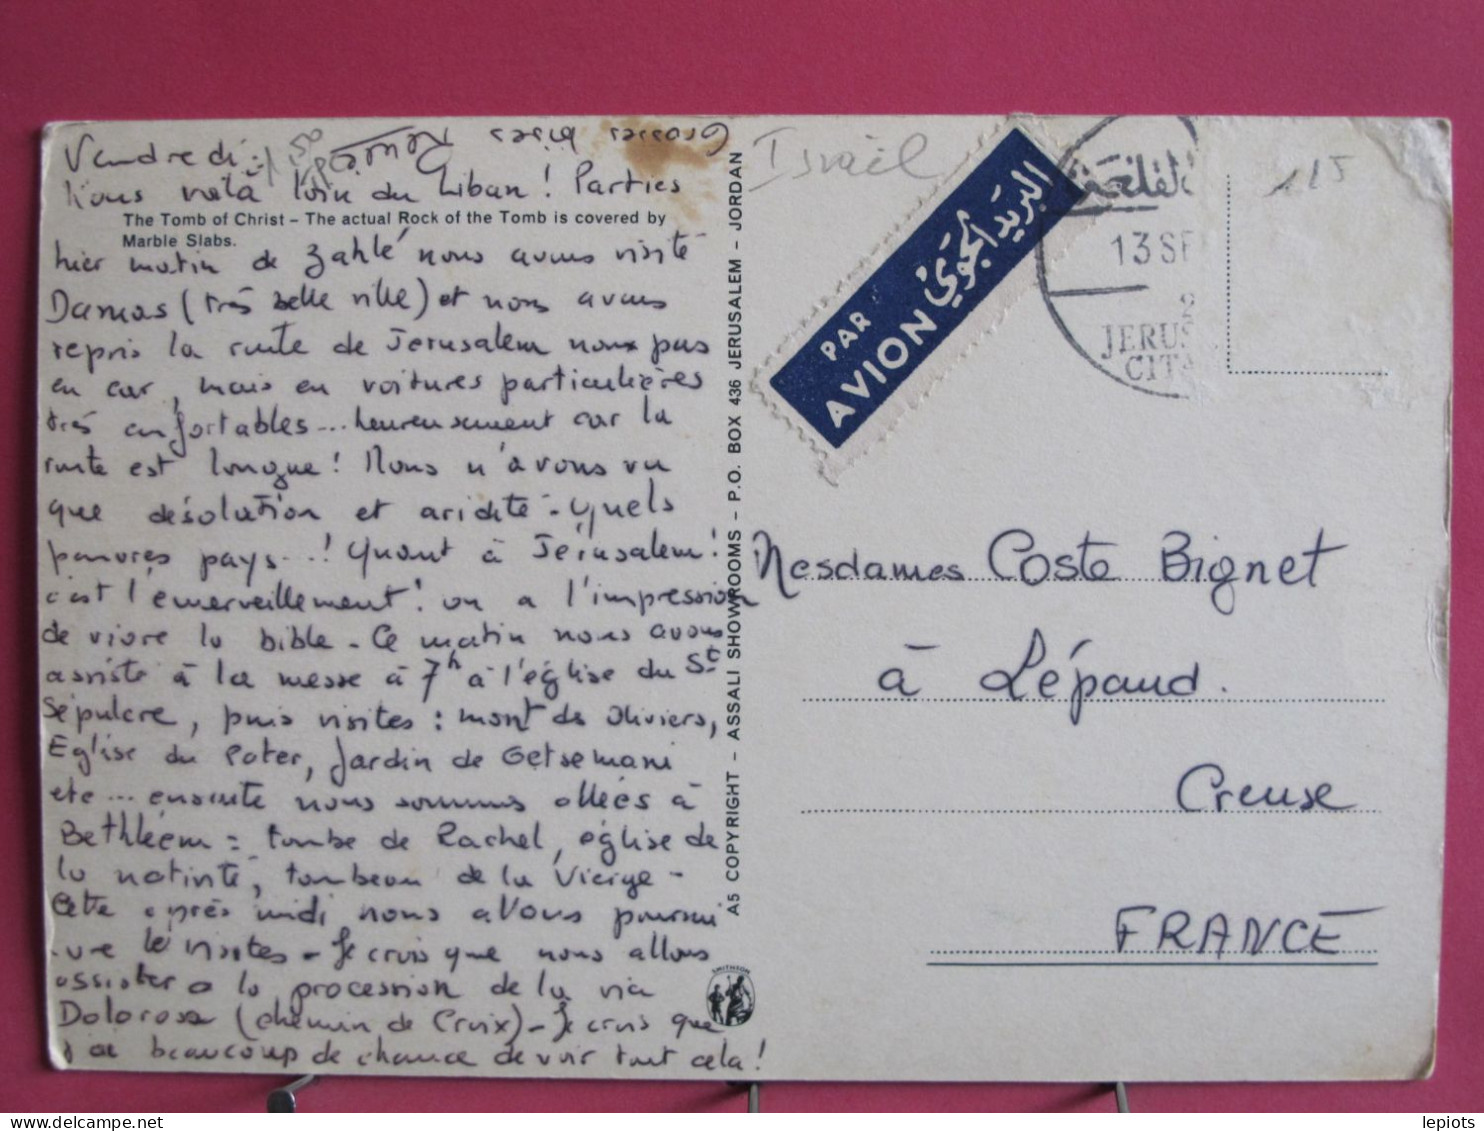 Grosses bises
Vendredi
Nous voilà loin du Liban ! Parties
The Tomb of Christ – The actual Rock of the Tomb is covered by
Marble Slabs.
hier matin de Zahlé nous avons visité
Damas (très belle ville) et nous avons
repris la route de Jérusalem non pas
en car, mais en voitures particulières
très confortables... heureusement car la
route est longue ! Nous n'avons vu
que désolation et aridité - Quels
pauvres pays...! Quant à Jérusalem !
c'est l'émerveillement ! on a l'impression
de vivre la bible - Ce matin nous avons
assisté à la messe à 7h à l'église du St
Sépulcre, puis visites : mont des Oliviers,
Eglise du Pater, Jardin de Getsemani
etc... ensuite nous sommes allées à
Bethléem : tombe de Rachel, église de
la nativité, tombeau de la Vierge -
Cette après midi nous allons poursui
vre les visites - Je crois que nous allons
assister à la procession de la via
Dolorosa (chemin de Croix) - Je crois que
j'ai beaucoup de chance de voir tout cela !
A5 COPYRIGHT – ASSALI SHOWROOMS – P.O. BOX 436 JERUSALEM – JORDAN
SMITHSON
Israël
البريد الجوي
PAR
AVION
13 SE
JERUS
CIT
115
Mesdames Coste Bignet
à Lépaud.
Creuse
FRANCE
lepiots